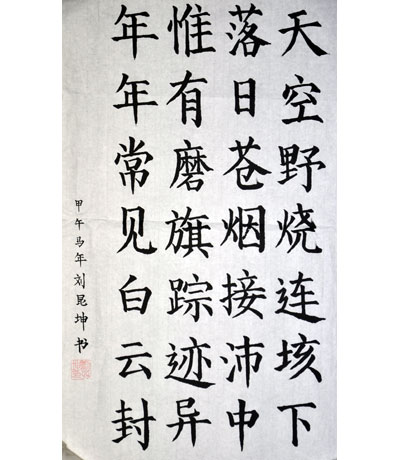 天空野烧连垓下
落日苍烟接沛中
惟有磨旗踪迹异
年年常见白云封
甲午马年刘昆坤书